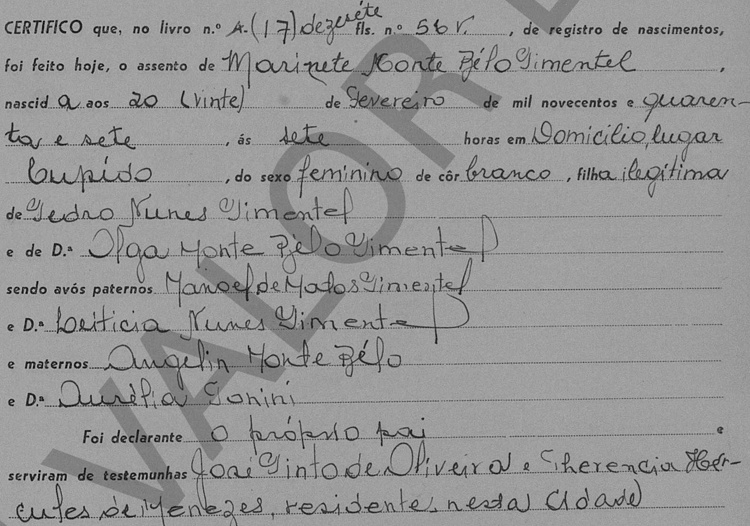 CERTIFICO que, no livro n.º A-(17) dezesete fls. n.º 56 V. , de registro de nascimentos,
foi feito hoje, o assento de Marinete Monte Bélo Pimentel ,
nascid a aos 20 (vinte) de Fevereiro de mil novecentos e quaren-
ta e sete , ás sete horas em Domicilio, lugar
Cupído , do sexo feminino de côr branco , filha ilegítima
de Pedro Nunes Pimentel
e de D.ª Olga Monte Bélo Pimentel
sendo avós paternos Manoel de Matos Pimentel
e D.ª Leiticia Nunes Pimentel
e maternos Angelin Monte Bélo
e D.ª Aurélia Tonini
Foi declarante o próprio pai e
serviram de testemunhas José Pinto de Oliveira e Therencia Hér-
cules de Menezes, residentes nesta Cidade
VALOR